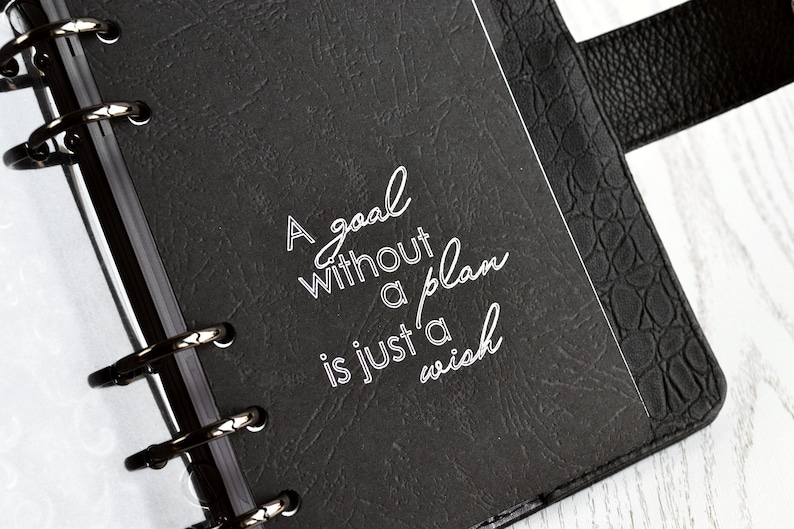 A goal
without
a plan
is just a
wish